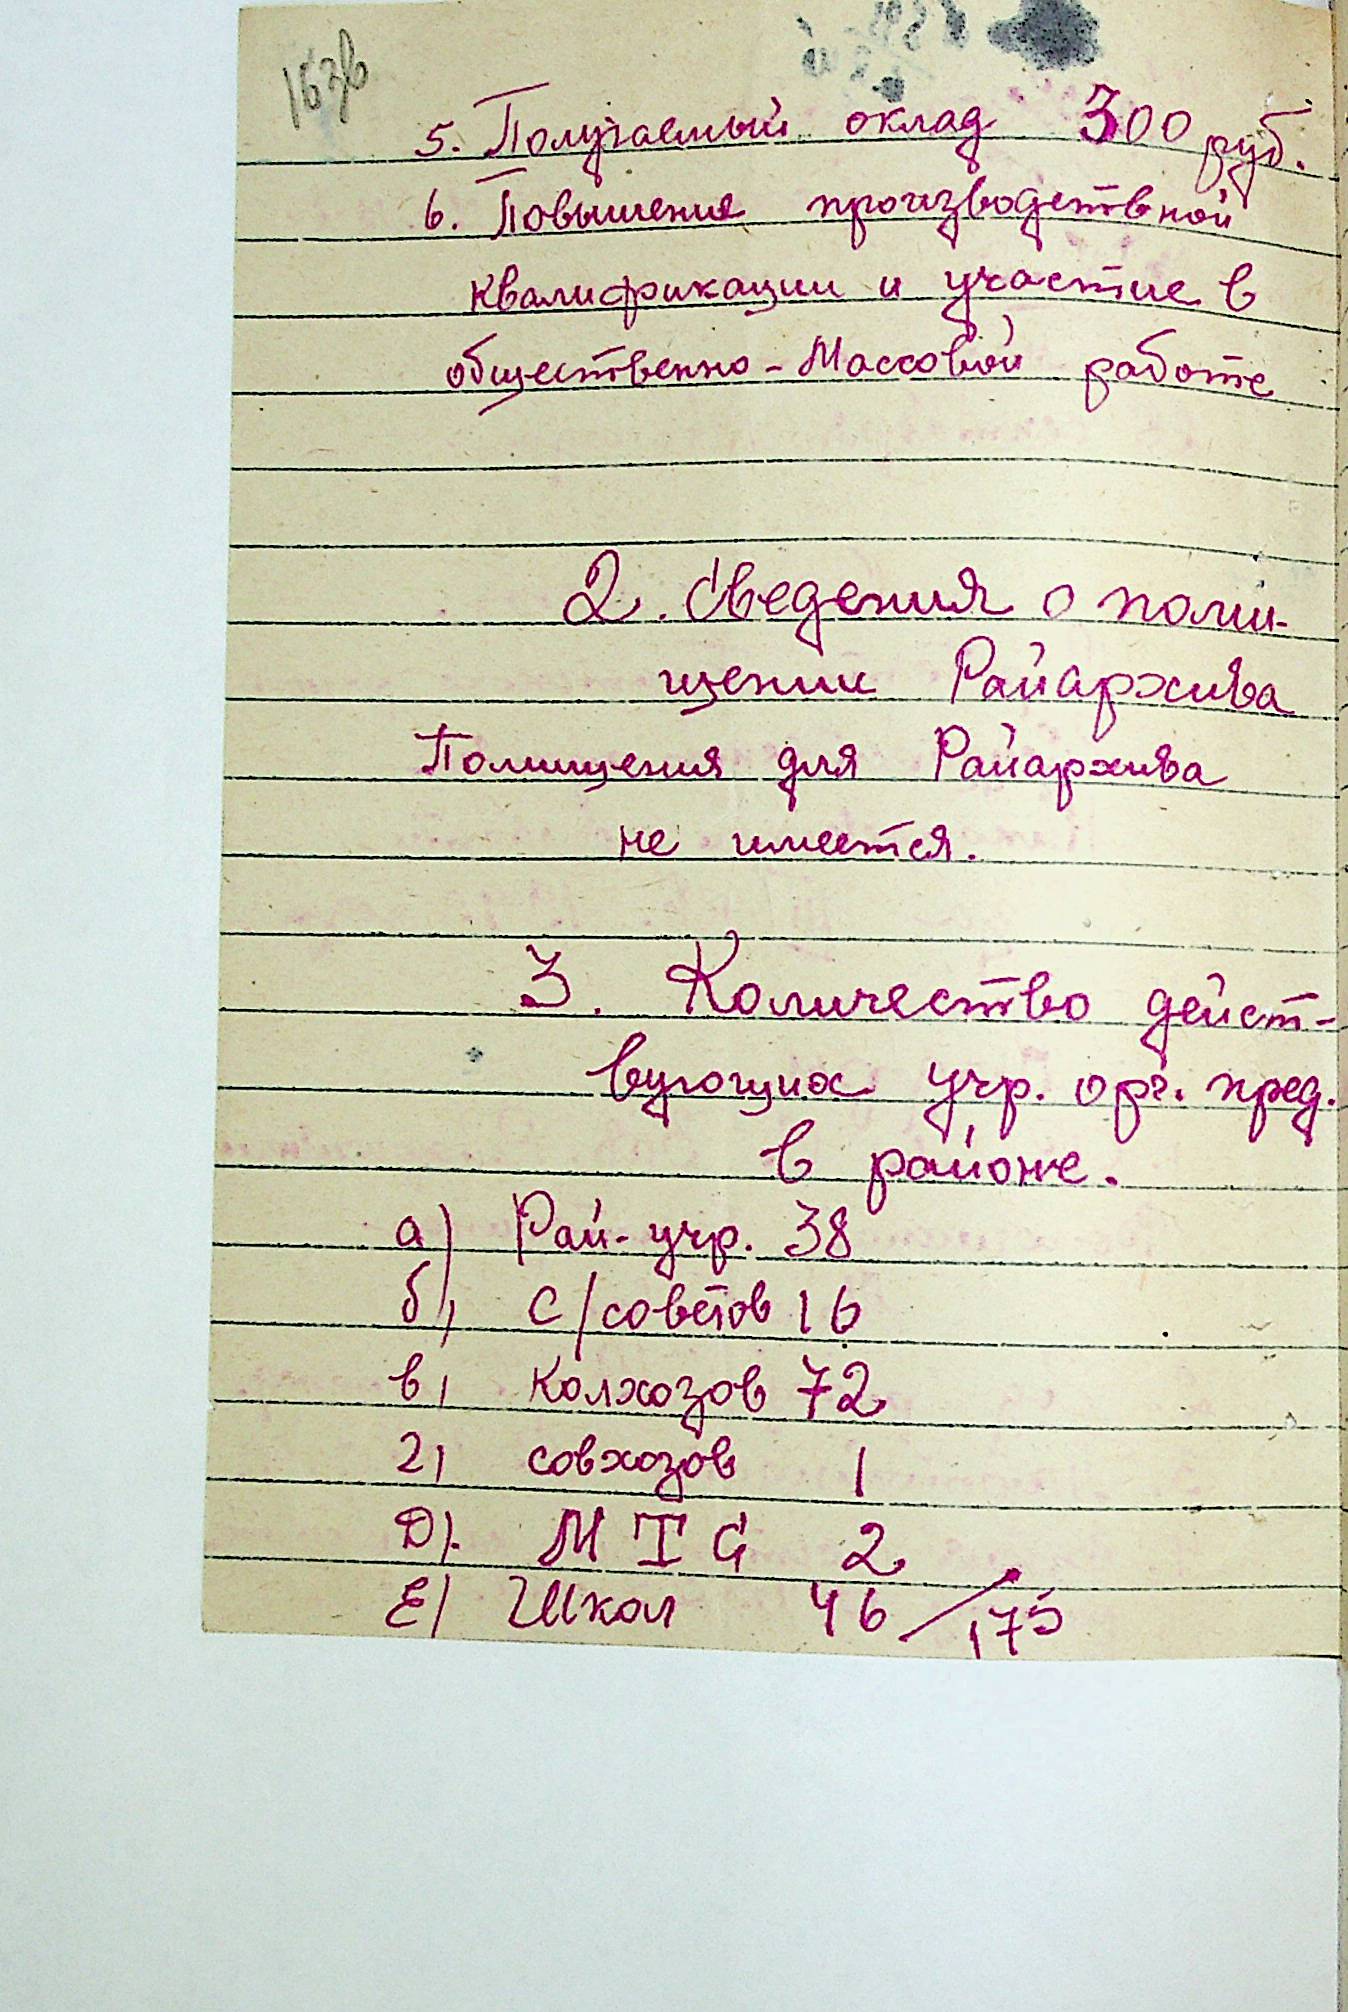 5. Получаемый оклад 300 руб.
6. Повышения производствной
квалификации и участие в
общественно-Массовой работе
2. Сведения о поми-
щении Райархива
Помищения для Райархива
не имеется.
3. Количество дейст-
вующих учр. орг. пред.
в районе.
а) Рай-учр. 38
б) с/советов 16
в) колхозов 72
г) совхозов 1
Д). М Т С 2
Е) Школ 46 / 175